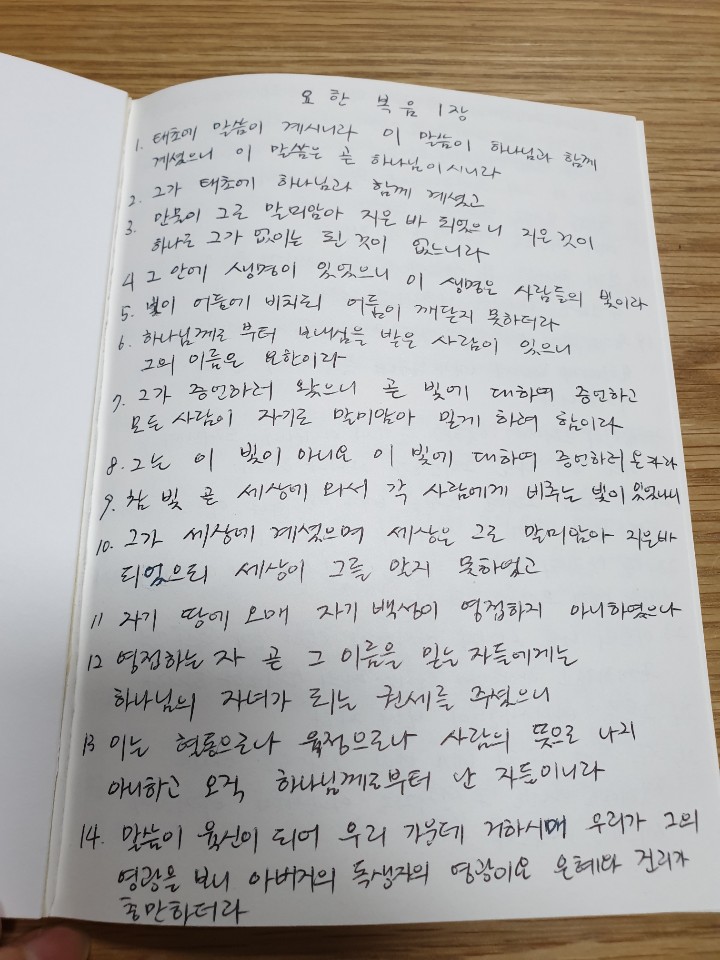 요한 복음 1장
1. 태초에 말씀이 계시니라 이 말씀이 하나님과 함께
계셨으니 이 말씀은 곧 하나님이시니라
2. 그가 태초에 하나님과 함께 계셨고
3. 만물이 그로 말미암아 지은 바 되었으니 지은 것이
하나도 그가 없이는 된 것이 없느니라
4 그 안에 생명이 있었으니 이 생명은 사람들의 빛이라
5. 빛이 어둠에 비치되 어둠이 깨닫지 못하더라
6. 하나님께로 부터 보내심을 받은 사람이 있으니
그의 이름은 요한이라
7. 그가 증언하러 왔으니 곧 빛에 대하여 증언하고
모든 사람이 자기로 말미암아 믿게 하려 함이라
8. 그는 이 빛이 아니요 이 빛에 대하여 증언하러 온 자라
9. 참 빛 곧 세상에 와서 각 사람에게 비추는 빛이 있었나니
10. 그가 세상에 계셨으며 세상은 그로 말미암아 지은바
되었으되 세상이 그를 알지 못하였고
11 자기 땅에 오매 자기 백성이 영접하지 아니하였으나
12 영접하는 자 곧 그 이름을 믿는 자들에게는
하나님의 자녀가 되는 권세를 주셨으니
13 이는 혈통으로나 육정으로나 사람의 뜻으로 나지
아니하고 오직 하나님께로부터 난 자들이니라
14. 말씀이 육신이 되어 우리 가운데 거하시매 우리가 그의
영광을 보니 아버지의 독생자의 영광이요 은혜와 진리가
충만하더라